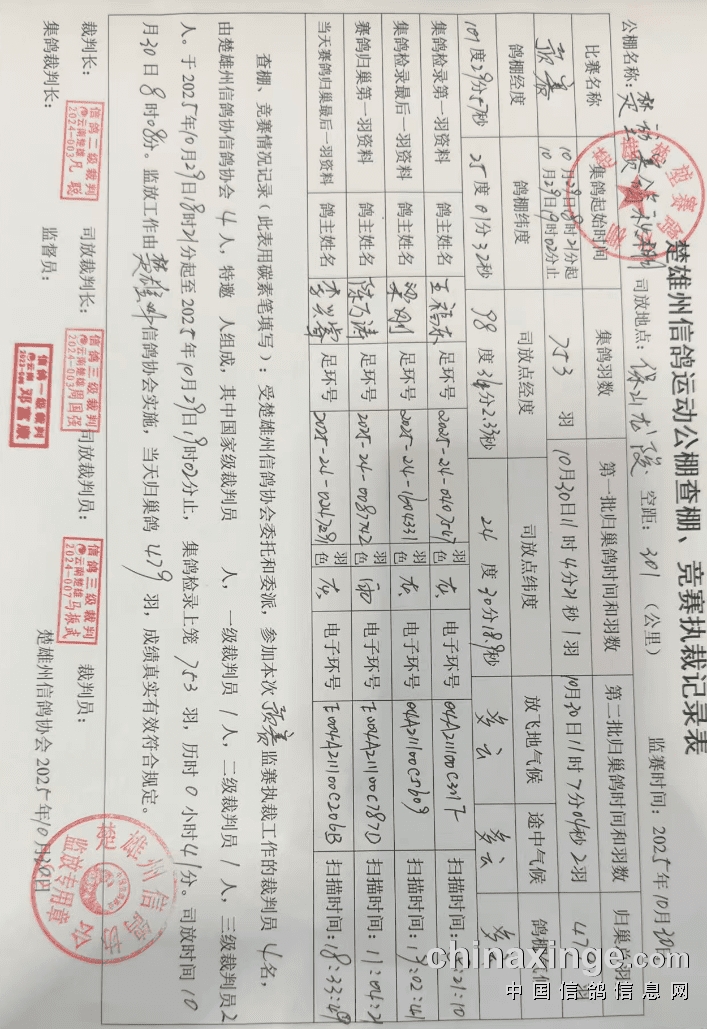 楚雄州信鸽运动公棚查棚、竞赛执裁记录表
公棚名称: 司放地点：保山龙陵 空距：301（公里） 监赛时间：2025年10月30日
比赛名称 集鸽起始时间 集鸽羽数 第一批归巢鸽时间和羽数 第二批归巢鸽时间和羽数 归巢总羽
预赛 10月29日18时21分起 10月29日19时02分止 753 羽 10月30日11时4分21秒1羽 10月30日11时7分04秒2羽 羽
鸽棚经度 鸽棚纬度 司放点经度 司放点纬度 放飞地气候 途中气候 鸽棚气候
101度29分57秒 25度01分32秒 98度31分2.33秒 24度30分18.9秒 多云 多云 多云
集鸽检录第一羽资料 鸽主姓名 足环号 2025-24-0407567 羽色 灰 电子环号 扫描时间：
集鸽检录最后一羽资料 鸽主姓名 梁刚 足环号 2025-24-1604331 羽色 灰 电子环号 04A21100C5609 扫描时间：19:02:41
赛鸽归巢第一羽资料 鸽主姓名 陈乃涛 足环号 2025-24-0087042 羽色 雨 电子环号 E004A21100C787D 扫描时间：11:04:21
当天赛鸽归巢最后一羽资料 鸽主姓名 足环号 羽色 灰 电子环号 E004A21100C206B 扫描时间：18:33:49
查棚、竞赛情况记录（此表用碳素笔填写）：受楚雄州信鸽协会委托和委派，参加本次预赛监赛执裁工作的裁判员 4名，
由楚雄州信鸽协信鸽协会 4人，特邀 人组成，其中国家级裁判员 人，一级裁判员 1人，二级裁判员 1人，三级裁判员2
人。于2025年10月29日18时21分起至2025年10月29日19时02分止，集鸽检录上笼 753 羽，历时 0 小时41分。司放时间10
月30日8时08分。监放工作由楚雄州信鸽协会实施，当天归巢鸽 479 羽，成绩真实有效符合规定。
裁判长： 司放裁判长： 司放裁判员： 裁判员：
信鸽二级裁判
云南楚雄
2024-003
凡聪
信鸽三级裁判
云南楚雄
2024-003
周国强
信鸽三级裁判
云南楚雄
2024-007
马振武
集鸽裁判长： 监督员：
信鸽一级裁判
邓富康
楚雄州信鸽协会 2025年10月30日
楚雄州信鸽协会
监放专用章
chinaxinge.com
中国信鸽信息网